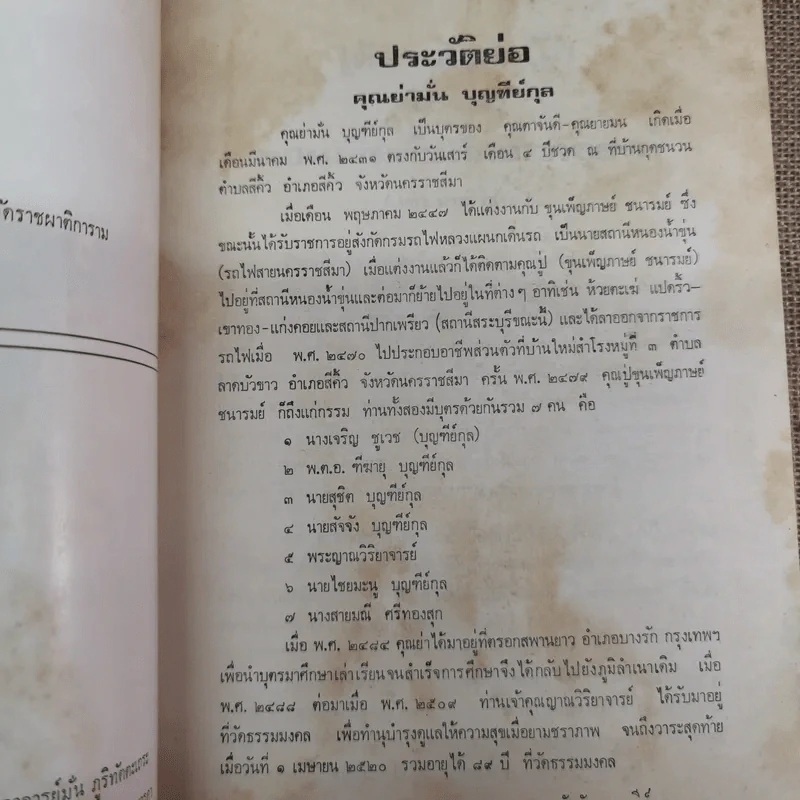 ประวัติย่อ
คุณย่ามั่น บุญฑีย์กุล
คุณย่ามั่น บุญฑีย์กุล เป็นบุตรของ คุณตาจันดี-คุณยายมน เกิดเมื่อ
เดือนมีนาคม พ.ศ. ๒๔๓๑ ตรงกับวันเสาร์ เดือน ๔ ปีชวด ณ ที่บ้านกุดชนวน
ตำบลสีคิ้ว อำเภอสีคิ้ว จังหวัดนครราชสีมา
เมื่อเดือน พฤษภาคม ๒๔๔๗ ได้แต่งงานกับ ขุนเพ็ญภาษย์ ชนารมย์ ซึ่ง
ขณะนั้นได้รับราชการอยู่สังกัดกรมรถไฟหลวงแผนกเดินรถ เป็นนายสถานีหนองน้ำขุ่น
(รถไฟสายนครราชสีมา) เมื่อแต่งงานแล้วก็ได้ติดตามคุณปู่ (ขุนเพ็ญภาษย์ ชนารมย์)
ไปอยู่ที่สถานีหนองน้ำขุ่นและต่อมาก็ย้ายไปอยู่ในที่ต่างๆ อาทิเช่น ห้วยตะเฆ่ แปดริ้ว-
เขาทอง-แก่งคอยและสถานีปากเพรียว (สถานีสระบุรีขณะนี้) และได้ลาออกจากราชการ
รถไฟเมื่อ พ.ศ. ๒๔๗๐ ไปประกอบอาชีพส่วนตัวที่บ้านใหม่สำโรงหมู่ที่ ๓ ตำบล
ลาดบัวขาว อำเภอสีคิ้ว จังหวัดนครราชสีมา ครั้น พ.ศ. ๒๔๗๙ คุณปู่ขุนเพ็ญภาษย์
ชนารมย์ ก็ถึงแก่กรรม ท่านทั้งสองมีบุตรด้วยกันรวม ๗ คน คือ
๑ นางเจริญ ชูเวช (บุญฑีย์กุล)
๒ พ.ต.อ. ฑีฆายุ บุญฑีย์กุล
๓ นายสุชิต บุญฑีย์กุล
๔ นายสัจจัง บุญฑีย์กุล
๕ พระญาณวิริยาจารย์
๖ นายไชยมะนู บุญฑีย์กุล
๗ นางสายมณี ศรีทองสุก
เมื่อ พ.ศ. ๒๔๘๔ คุณย่าได้มาอยู่ที่ตรอกสพานยาว อำเภอบางรัก กรุงเทพฯ
เพื่อนำบุตรมาศึกษาเล่าเรียนจนสำเร็จการศึกษาจึงได้กลับไปยังภูมิลำเนาเดิม เมื่อ
พ.ศ. ๒๔๘๘ ต่อมาเมื่อ พ.ศ. ๒๕๐๙ ท่านเจ้าคุณญาณวิริยาจารย์ ได้รับมาอยู่
ที่วัดธรรมมงคล เพื่อทำนุบำรุงดูแลให้ความสุขเมื่อยามชราภาพ จนถึงวาระสุดท้าย
เมื่อวันที่ ๑ เมษายน ๒๕๒๐ รวมอายุได้ ๘๙ ปี ที่วัดธรรมมงคล
ัดราชผาติการาม
าจารย์มั่น ภูริทัตตะเถระ